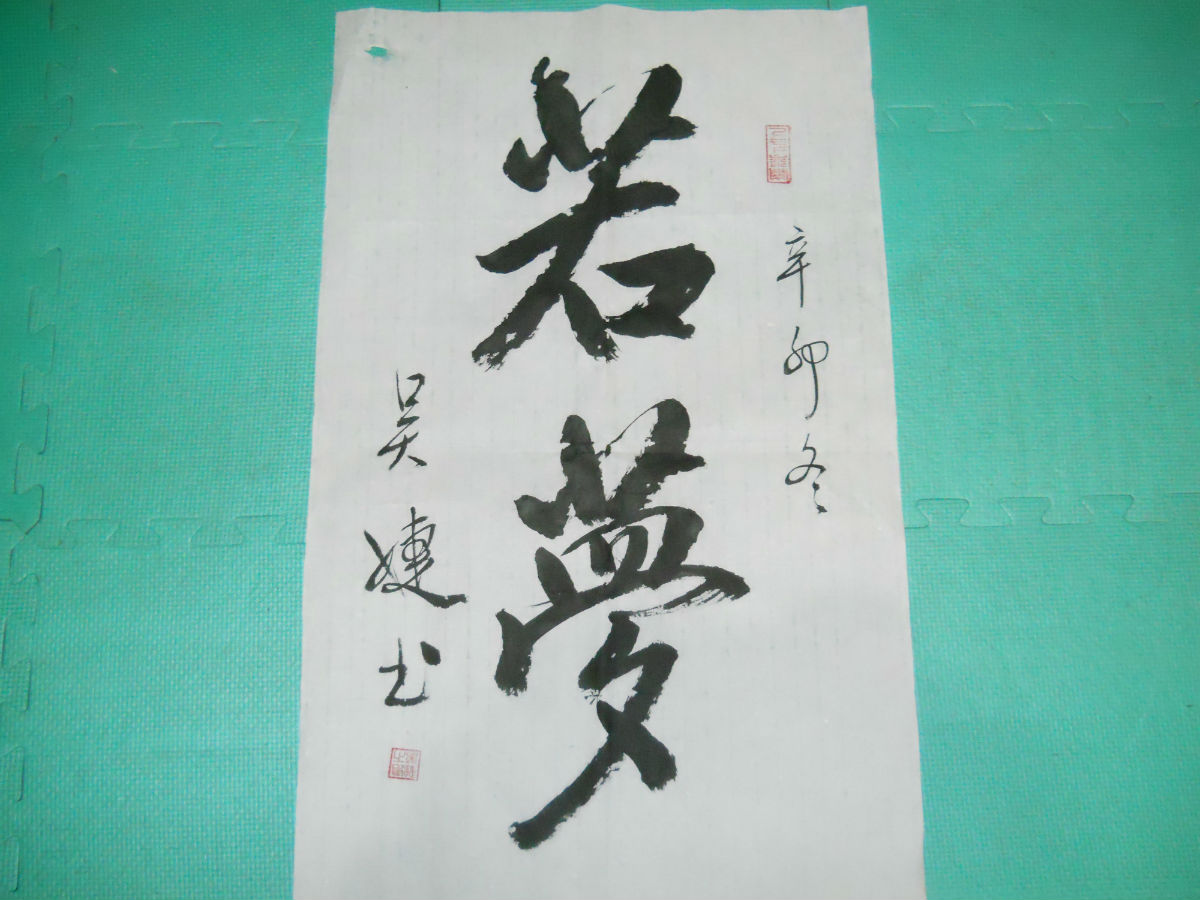 辛卯冬
若夢
吴婕书